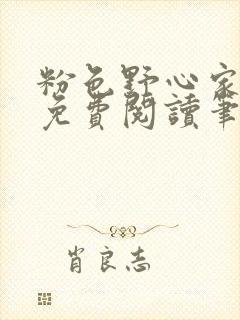 粉色野心家
免費閱讀筆
肖良志